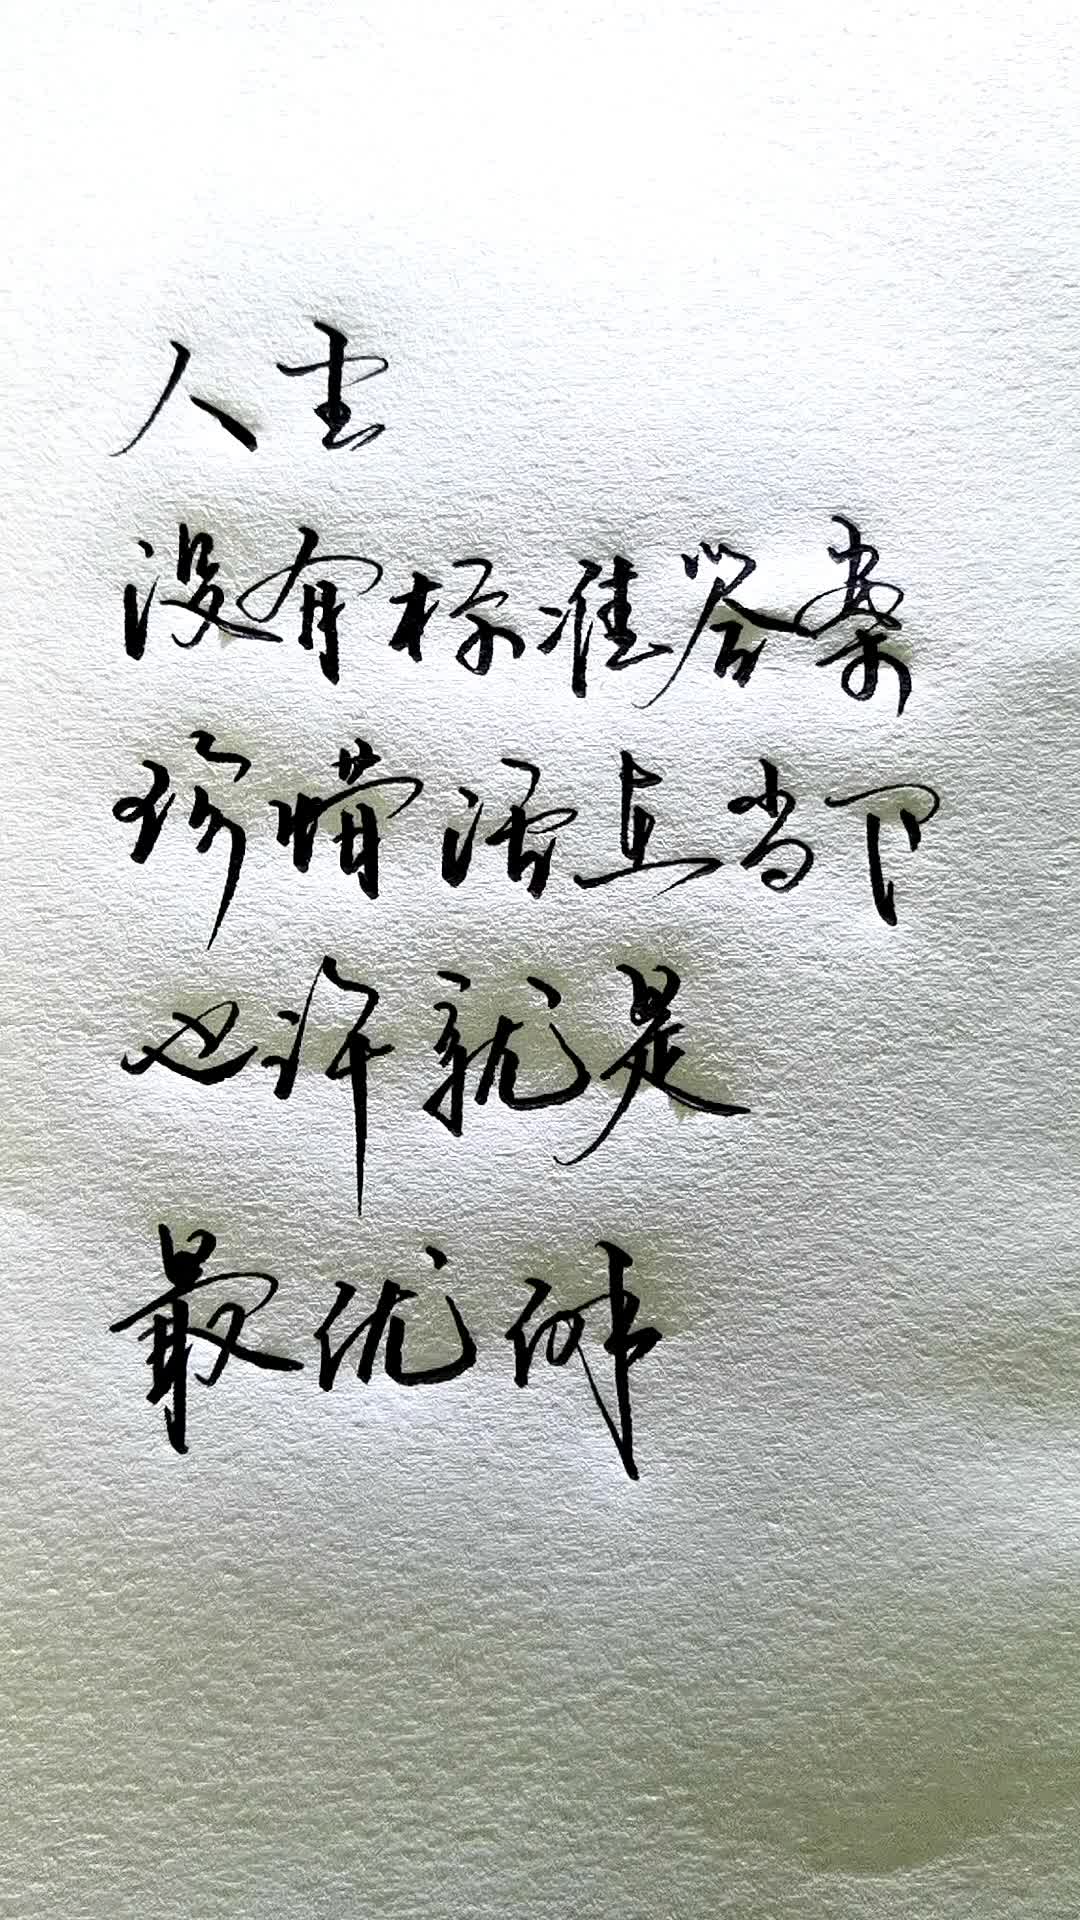 人生
没有标准答案
珍惜活在当下
也许就是
最优解